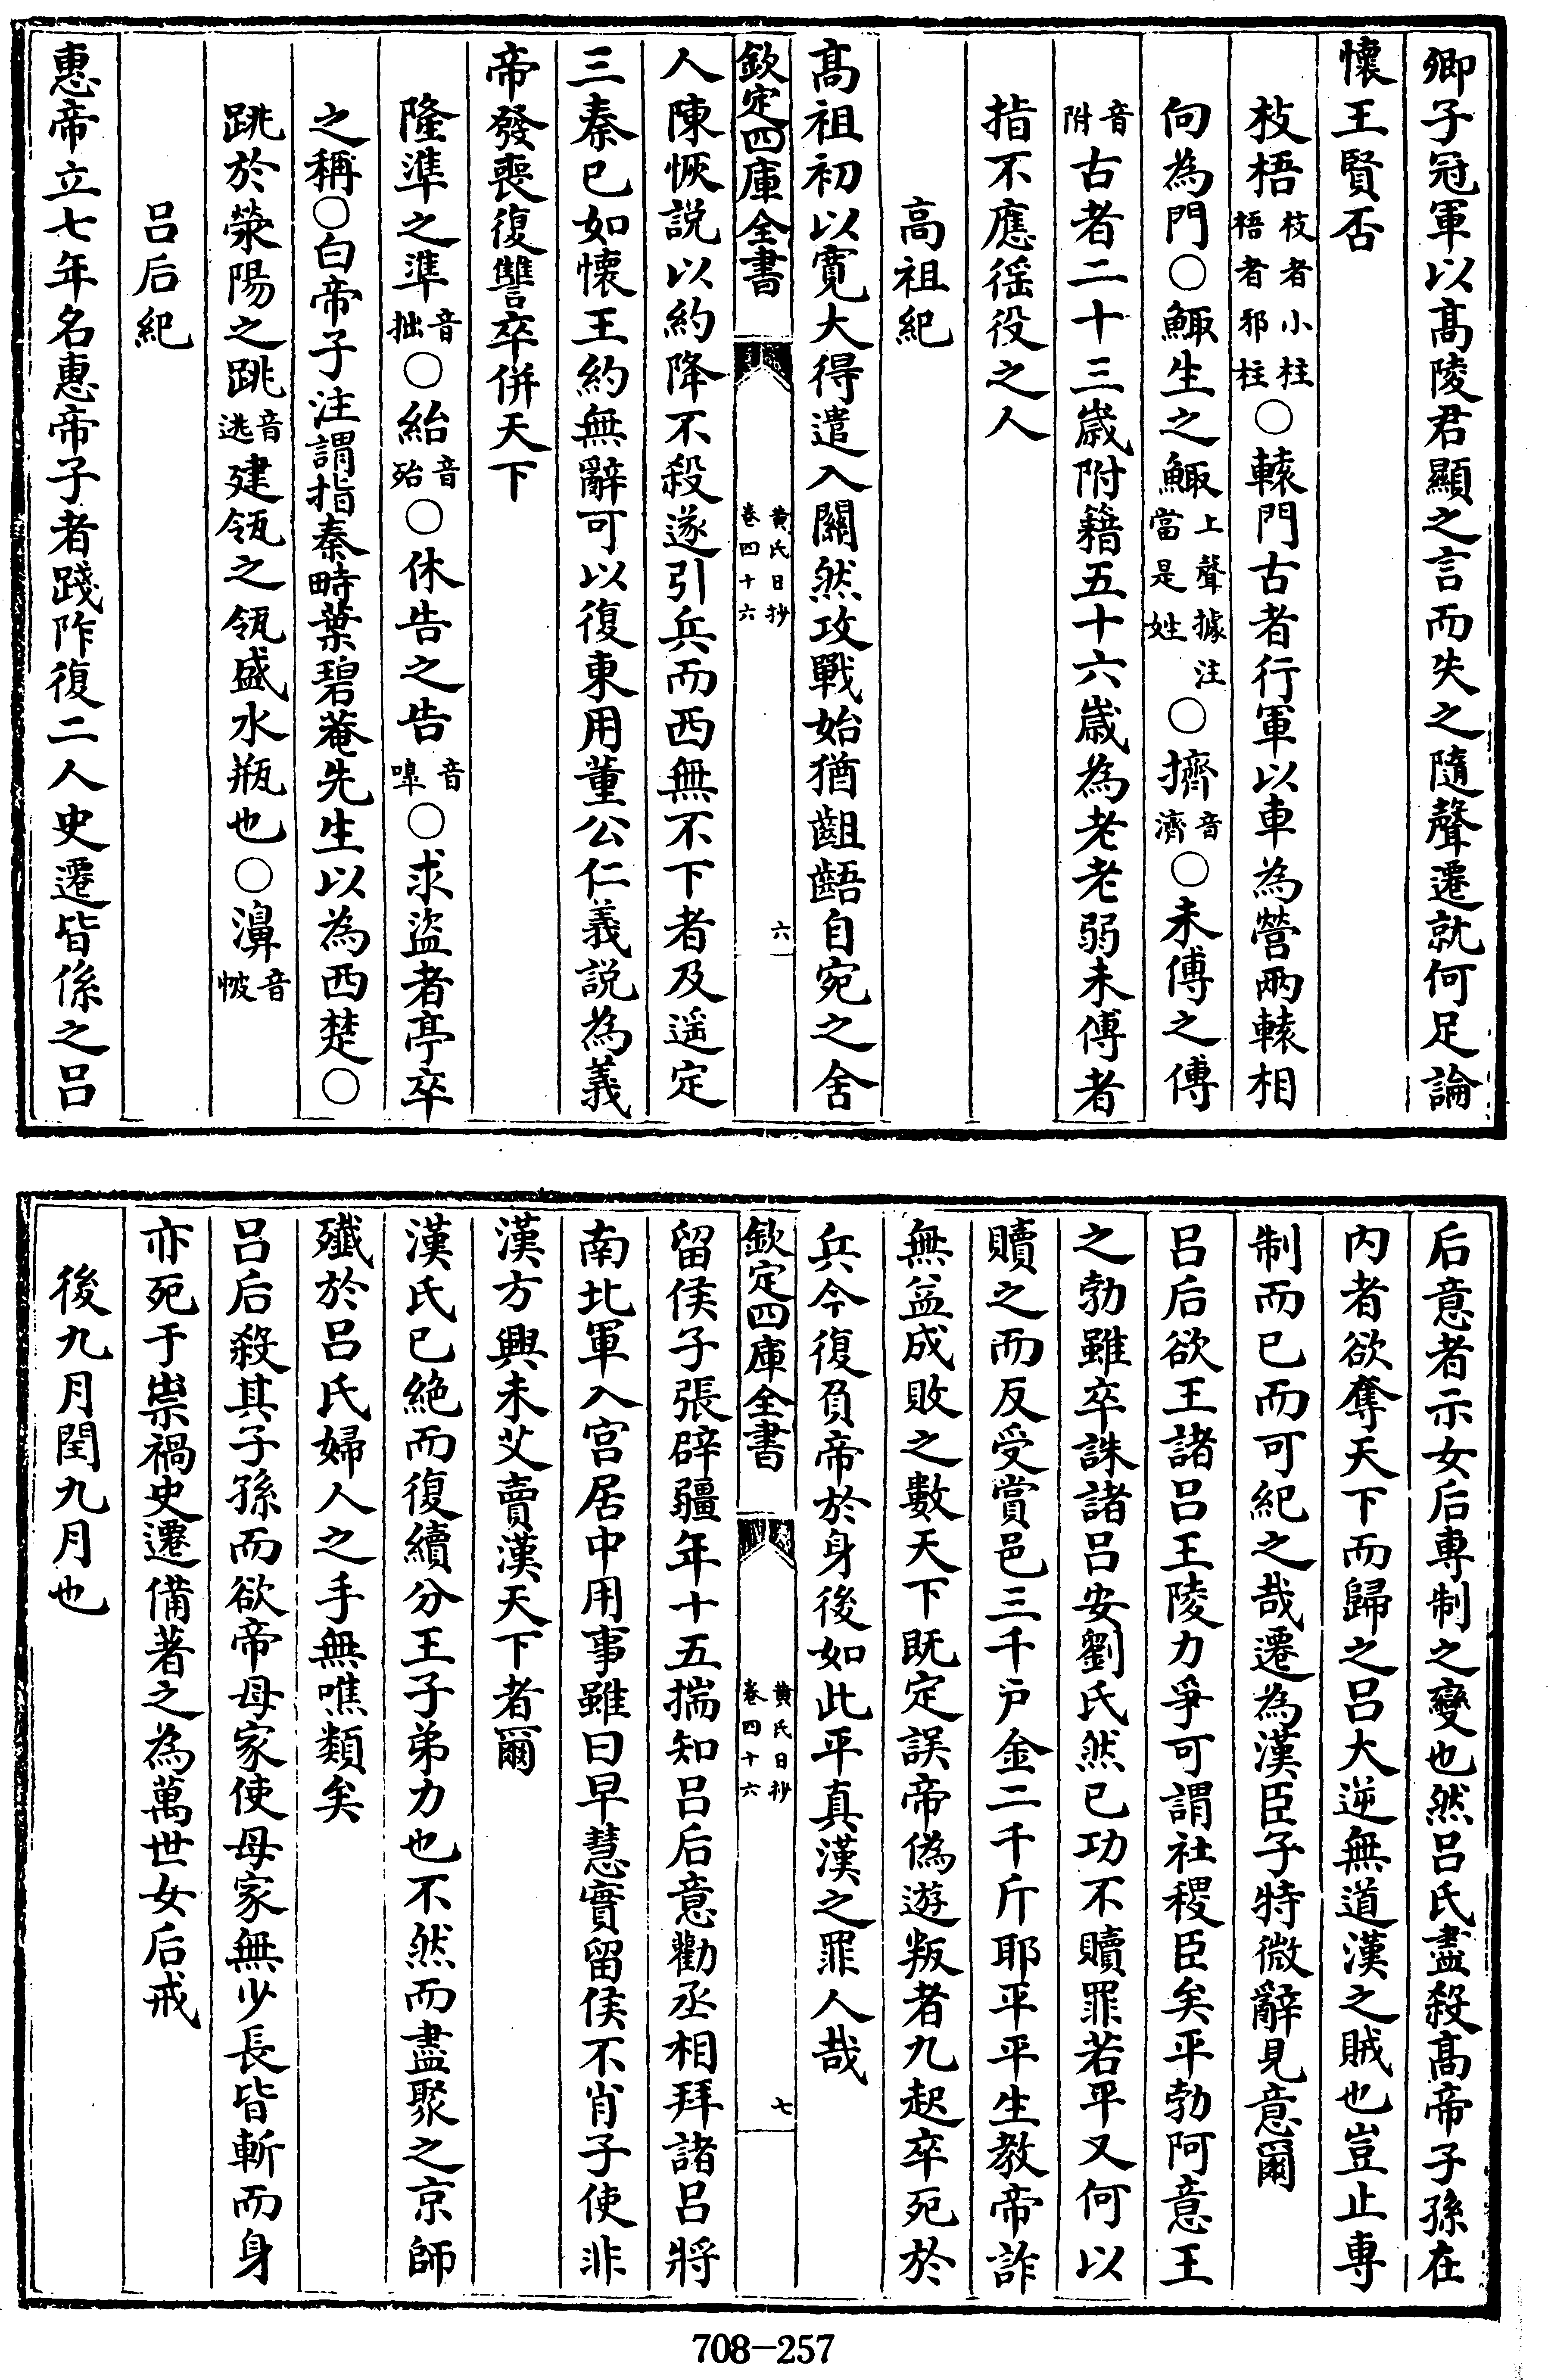 卿子冠軍以髙陵君顯之言而失之隨聲遷就何足論
懷王賢否
枝梧枝者小柱梧者邪柱○轅門古者行軍以車為營兩轅相
向為門○鯫生之鯫上聲據注當是姓○擠音濟○未傅之傅
音附古者二十三歲附籍五十六歲為老老弱未傅者
指不應徭役之人
高祖紀
髙祖初以寛大得遣入闗然攻戰始猶齟齬自宛之舍
欽定四庫全書
黄氏日抄
卷四十六
六
人陳恢説以約降不殺遂引兵而西無不下者及遥定
三秦已如懷王約無辭可以復東用董公仁義説為義
帝發喪復讐卒併天下
隆準之準音拙○紿音殆○休告之告音嘷○求盜者亭卒
之稱○白帝子注謂指秦畤葉碧菴先生以為西楚○
跳於滎陽之跳音逃建瓴之瓴盛水瓶也○濞音帔
呂后紀
惠帝立七年名惠帝子者踐阼復二人史遷皆係之呂
后意者示女后専制之變也然呂氏盡殺髙帝子孫在
内者欲奪天下而歸之呂大逆無道漢之賊也豈止専
制而已而可紀之哉遷為漢臣子特微辭見意爾
呂后欲王諸呂王陵力爭可謂社稷臣矣平勃阿意王
之勃雖卒誅諸呂安劉氏然已功不贖罪若平又何以
贖之而反受賞邑三千戸金二千斤耶平平生教帝詐
無益成敗之數天下既定誤帝偽遊叛者九起卒死於
兵今復負帝於身後如此平真漢之罪人哉
欽定四庫全書
黄氏日抄
卷四十六
七
留侯子張辟疆年十五揣知呂后意勸丞相拜諸呂將
南北軍入宫居中用事雖曰早慧實留侯不肖子使非
漢方興未艾賣漢天下者爾
漢氏已絶而復續分王子弟力也不然而盡聚之京師
殲於呂氏婦人之手無噍類矣
呂后殺其子孫而欲帝母家使母家無少長皆斬而身
亦死于祟禍史遷備著之為萬世女后戒
後九月閏九月也
708-257